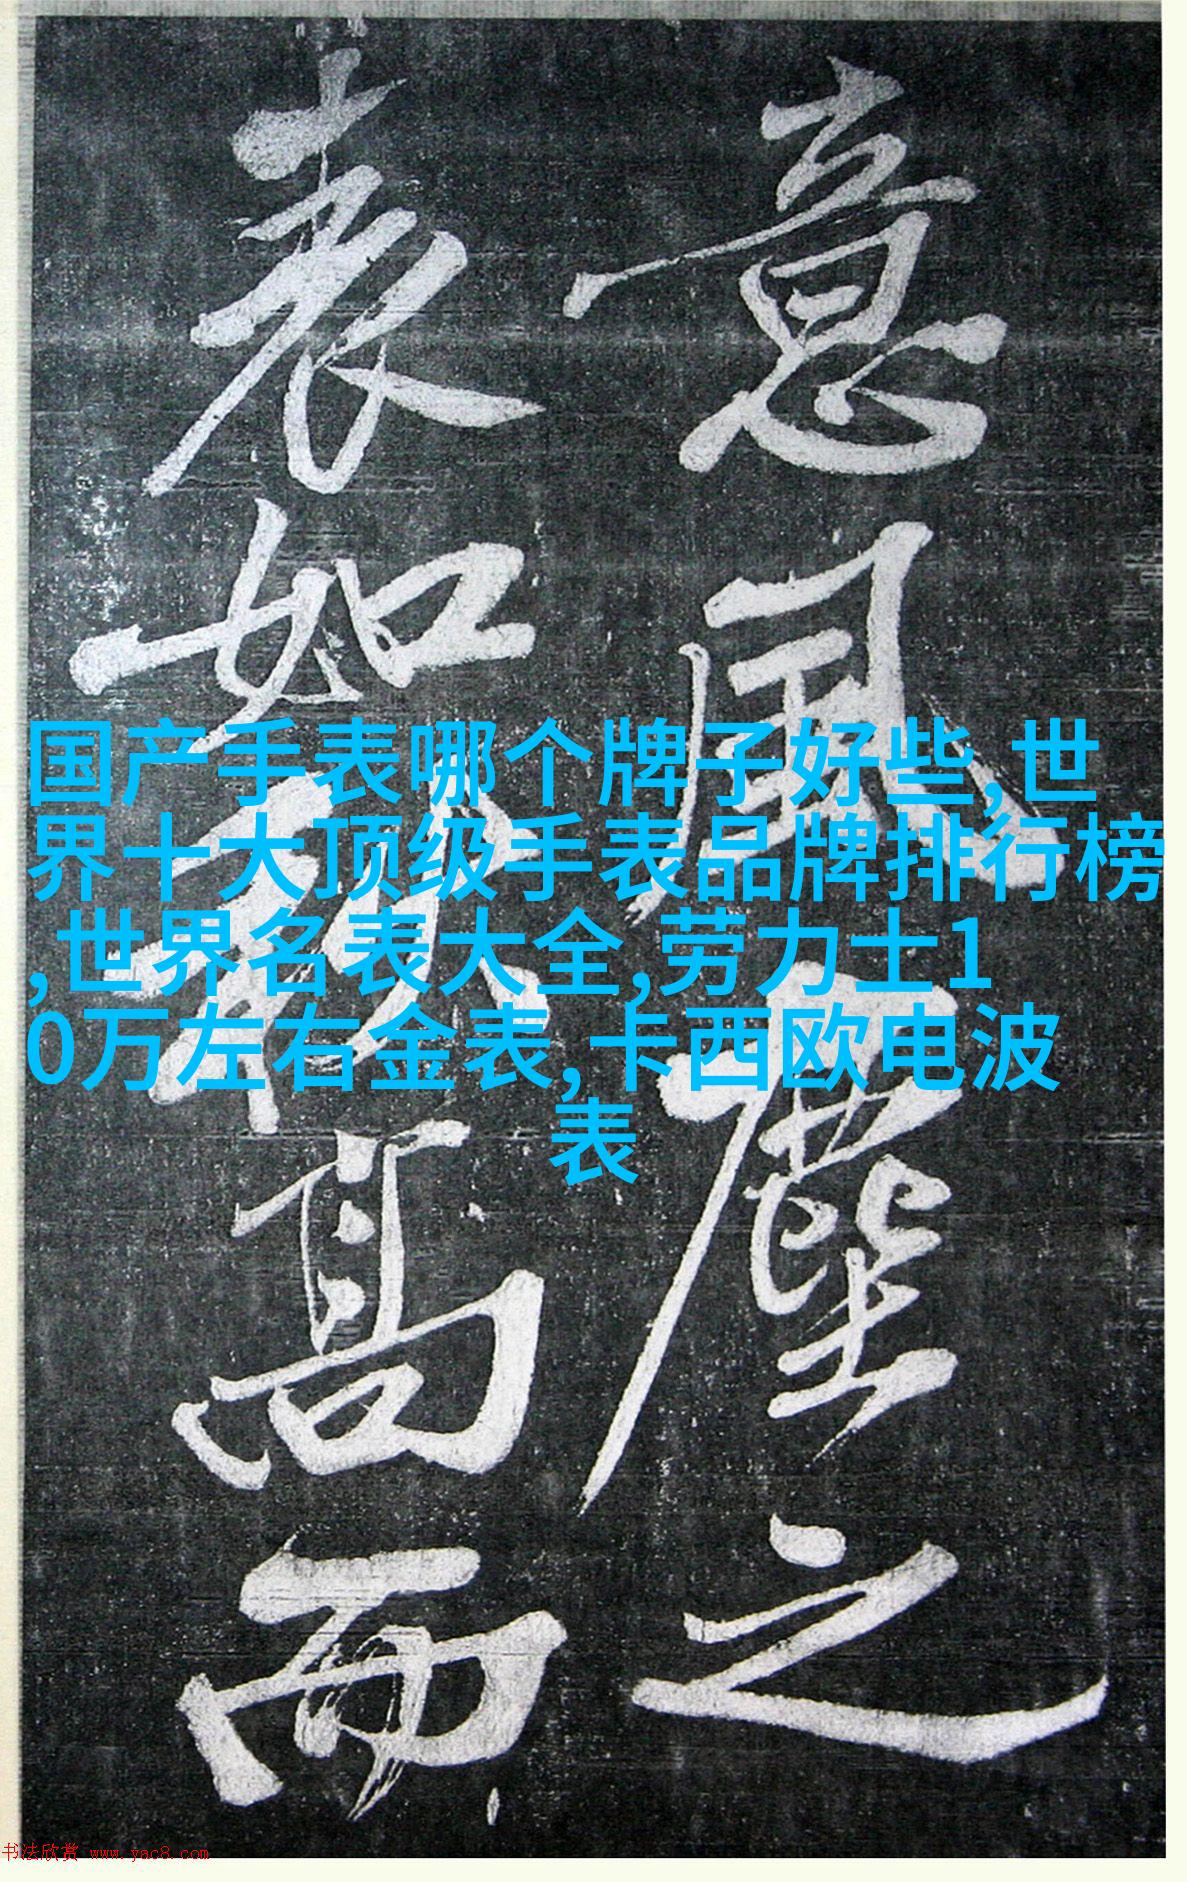 意風塵之
表如秋高而
国产手表哪个牌子好些,世
界十大顶级手表品牌排行榜
,世界名表大全,劳力士1
0万左右金表,卡西欧电波
表
书法欣赏 www.yac8.com